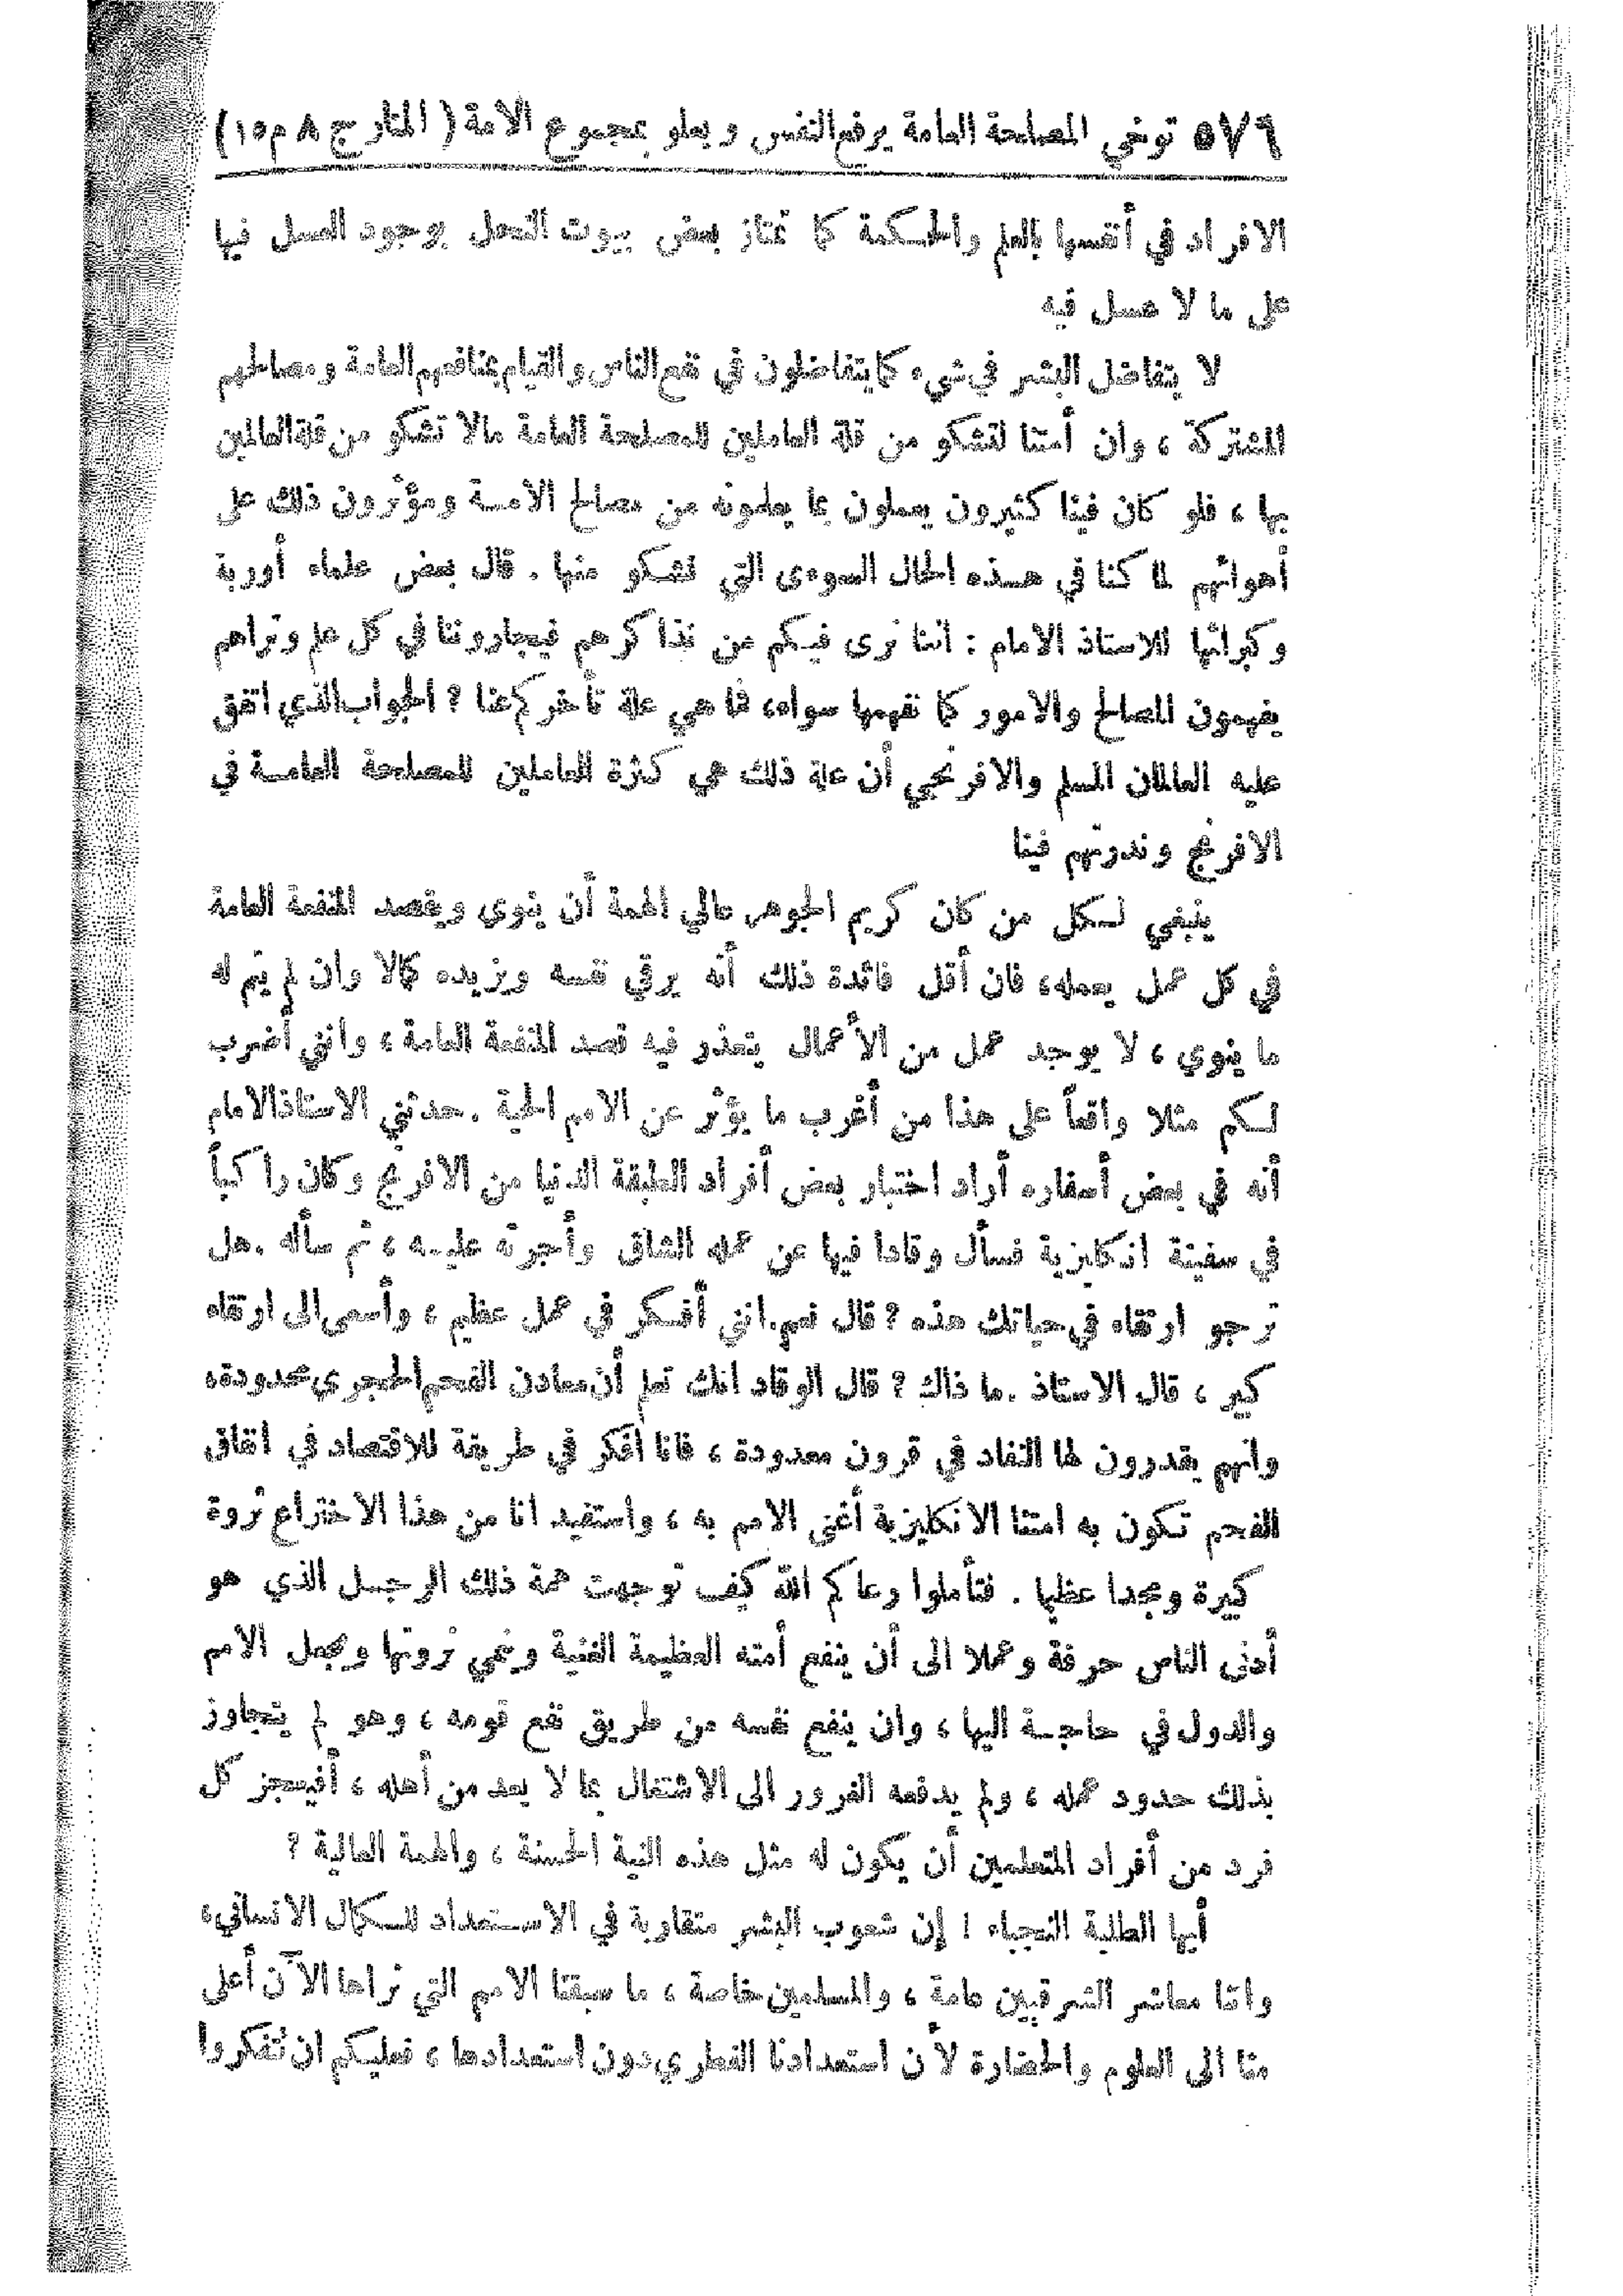 ٥٧٦ توخي المصلحة العامة يرفع النفس ويعلو بمجموع الامة (المنار ج ٨ م ١٥)
الافراد في أنفسها بالعلم والحكمة كما تمتاز بعض بيوت النحل بوجود العسل فيها
على ما لا عسل فيه
لا يتفاضل البشر في شيء كما يتفاضلون في نفع الناس والقيام بمنافعهم العامة ومصالحهم
المشتركة ، وان أمتنا لتشكو من قلة العاملين للمصلحة العامة مالا تشكو من قلة العالمين
بها ، فلو كان فينا كثيرون يعملون بما يعلمونه من مصالح الامة ومؤثرون ذلك على
أهوائهم لما كنا في هذه الحال السوءى التي نشكو منها . قال بعض علماء أوربة
وكبرائها للاستاذ الامام : اننا نرى فيكم من نذاكرهم فيجاروننا في كل علم ونراهم
يفهمون المصالح والامور كما نفهمها سواء، فما هي علة تأخركم عنا ؟ الجواب الذي اتفق
عليه العالمان المسلم والافرنجي أن علة ذلك هي كثرة العاملين للمصلحة العامة في
الافرنج وندرتهم فينا
ينبغي لكل من كان كريم الجوهر عالي الهمة أن ينوي ويقصد المنفعة العامة
في كل عمل يعمله، فان أقل فائدة ذلك أنه يرقي نفسه ويزيده كمالا وان لم يتم له
ما ينوي ، لا يوجد عمل من الأعمال يتعذر فيه قصد المنفعة العامة ، وانني أضرب
لكم مثلا واقعاً على هذا من أغرب ما يؤثر عن الامم الحية . حدثني الاستاذ الامام
أنه في بعض أسفاره أراد اختبار بعض أفراد الطبقة الدنيا من الافرنج وكان راكباً
في سفينة انكليزية فسأل وقادا فيها عن عمله الشاق وأجرته عليه ، ثم سأله . هل
ترجو ارتقاء في حياتك هذه ؟ قال نعم. انني أفكر في عمل عظيم ، وأسعى الى ارتقاء
كبير ، قال الاستاذ . ما ذاك ؟ قال الوقاد انك تعلم أن معادن الفحم الحجري محدودة،
وانهم يقدرون لها النفاد في قرون معدودة ، فانا افكر في طريقة للاقتصاد في انفاق
الفحم تكون به امتنا الانكليزية أغنى الامم به ، واستفيد انا من هذا الاختراع ثروة
كبيرة ومجدا عظيما . فتأملوا رعاكم الله كيف توجهت همة ذلك الرجل الذي هو
أدنى الناس حرفة وعملا الى أن ينفع أمته العظيمة الغنية وينمي ثروتها ويجعل الامم
والدول في حاجة اليها ، وان ينفع نفسه من طريق نفع قومه ، وهو لم يتجاوز
بذلك حدود عمله ، ولم يدفعه الغرور الى الاشتغال بما لا يعد من أهله ، أفيعجز كل
فرد من أفراد المتعلمين أن يكون له مثل هذه النية الحسنة ، والهمة العالية ؟
أيها الطلبة النجباء ! إن شعوب البشر متقاربة في الاستعداد للكمال الانساني،
واننا معاشر الشرقيين عامة ، والمسلمين خاصة ، ما سبقتنا الامم التي نراها الآن أعلى
منا الى العلوم والحضارة لأن استعدادنا الفطري دون استعدادها ، فعليكم ان تفكروا